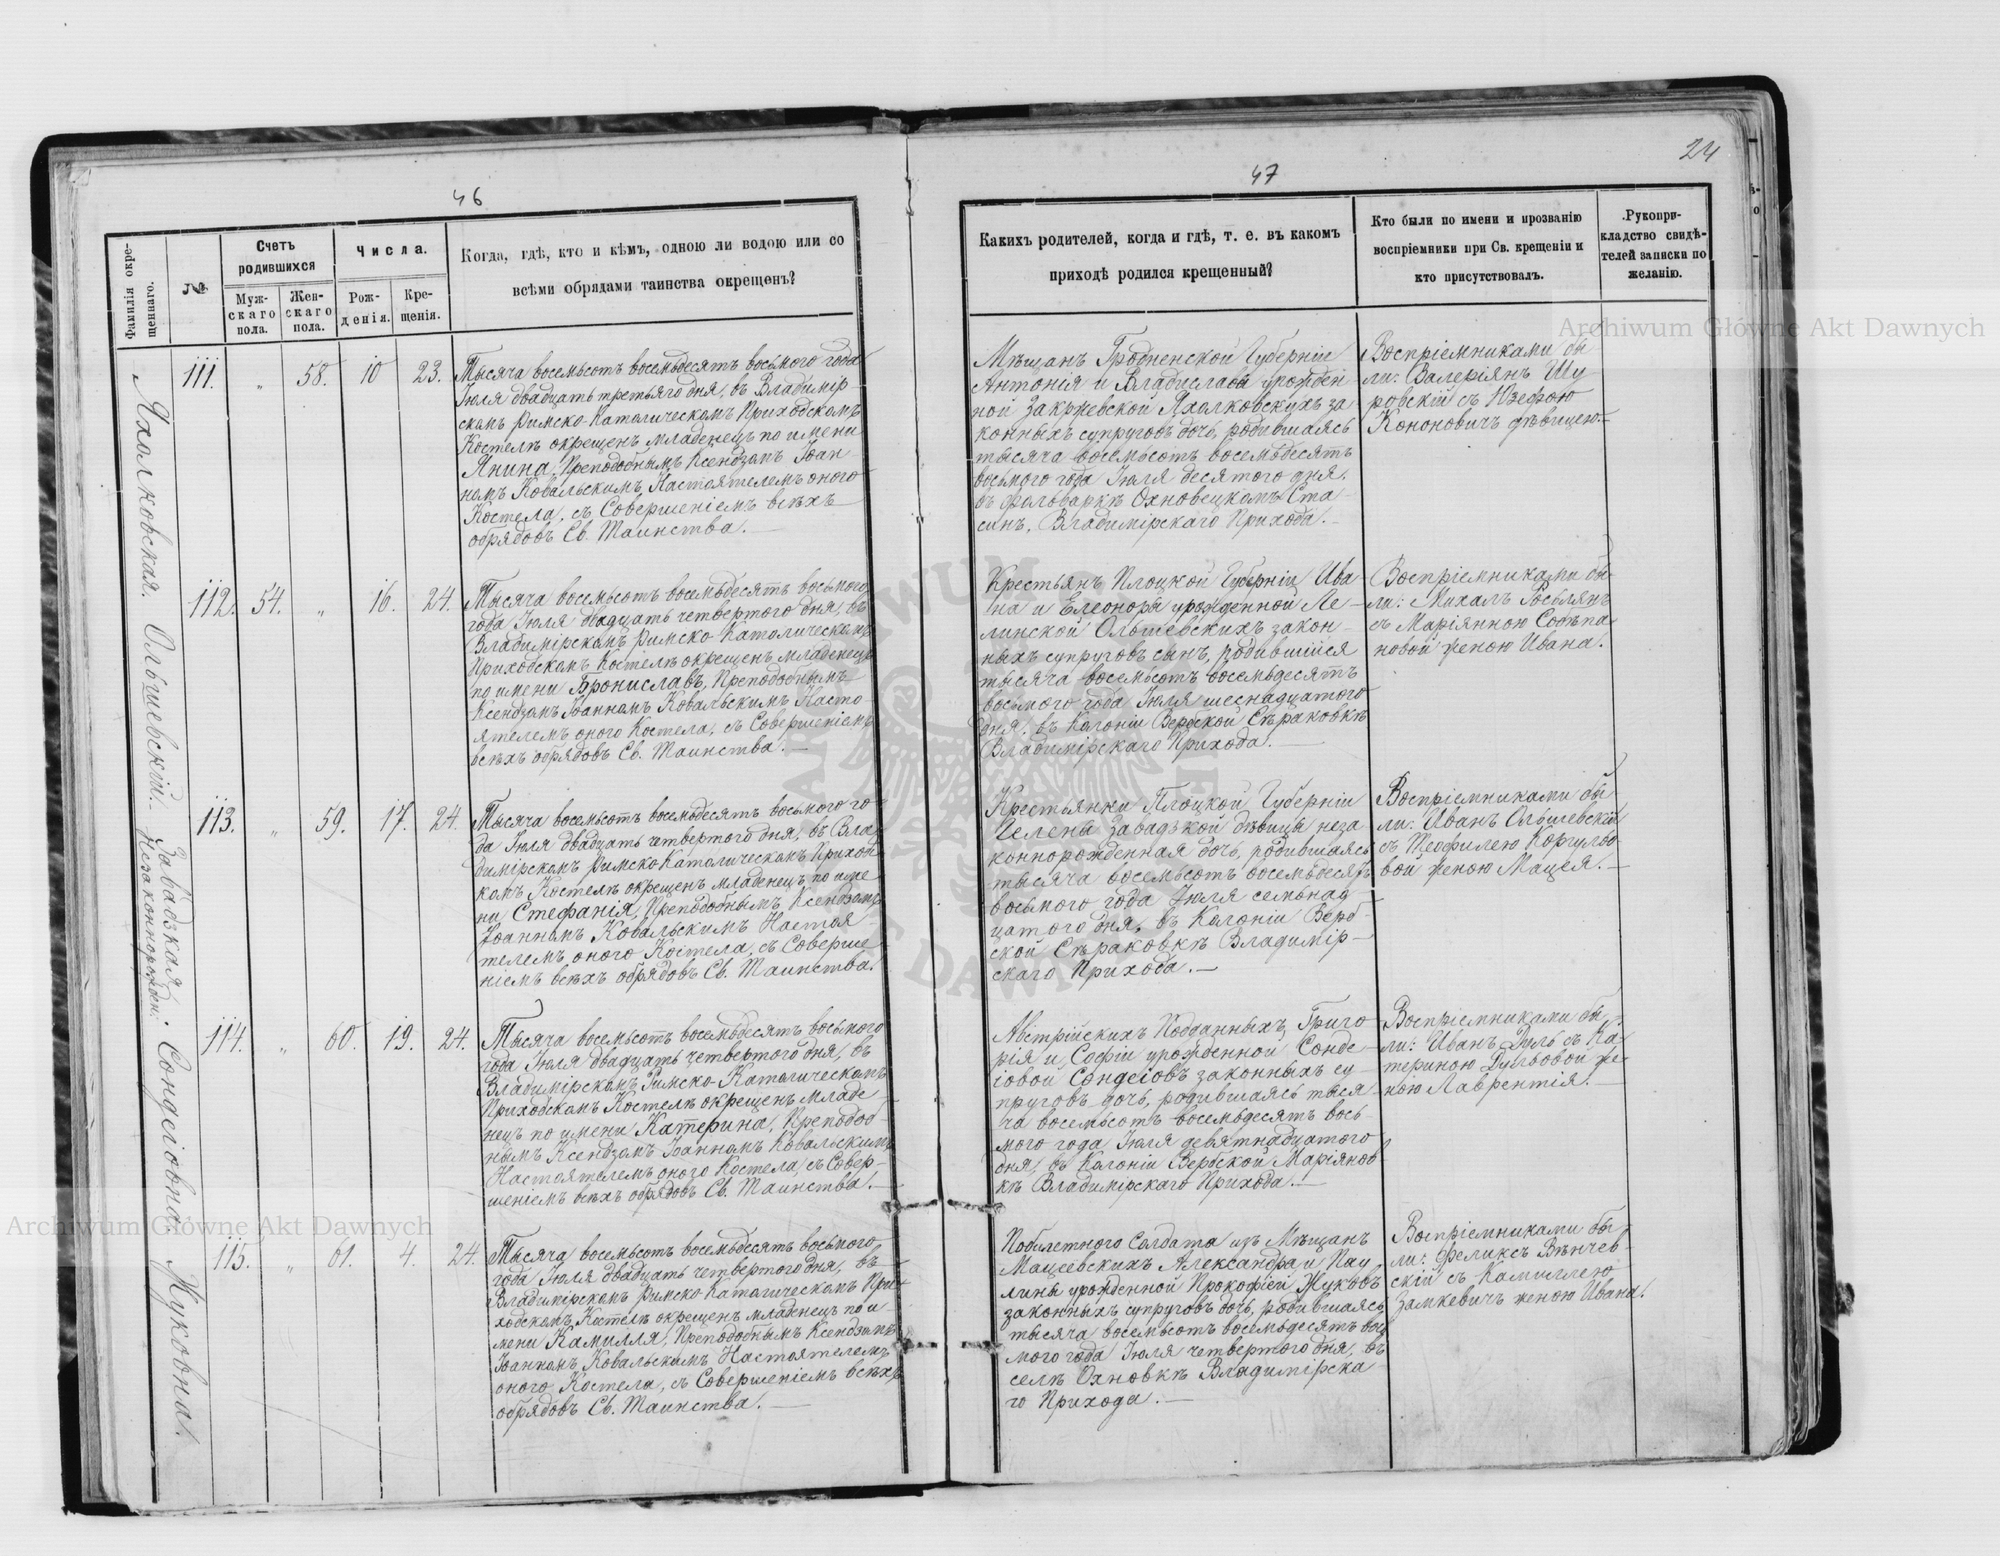 24
46
47
Фамилія окре-
щеннаго.
№
Счетъ
родившихся
Муж-
скаго
пола.
Жен-
скаго
пола.
Числа.
Рож-
денія.
Кре-
щенія.
Когда, гдѣ, кто и кѣмъ, одною ли водою или со
всѣми обрядами таинства окрещенъ?
Каких родителей, когда и гдѣ, т. е. въ какомъ
приходѣ родился крещенный?
Кто были по имени и прозванію
воспріемники при Св. крещеніи и
кто присутствовалъ.
Рукопри-
кладство свидѣ-
телей записки по
желанію.
Яхолковская.
111. „ 58. 10 23.
Тысяча восемьсотъ восемьдесятъ восьмого года
Іюля двадцать третьяго дня, въ Владимір-
скомъ Римско-Католическомъ Приходскомъ
Костелѣ окрещенъ младенецъ по имени
Янина, Преподобнымъ Ксендзомъ Іоан-
номъ Ковальскимъ, Настоятелемъ оного
Костела, съ Совершеніемъ всѣхъ
обрядовъ Св. Таинства.
Мѣщанъ Гродненской Губерніи
Антонія и Владиславы урожден-
ной Закржевской Яхолковскихъ за-
конныхъ супруговъ дочь, родившаясь
тысяча восемьсотъ восемьдесятъ
восьмого года Іюля десятого дня,
въ фольваркѣ Охновецкомъ Ста-
синъ, Владимірскаго Прихода.
Воспріемниками бы
ли: Валеріянъ Шу-
ровскій съ Юзефою
Кононовичъ дѣвицею.
Ольшевскій.
112. 54. „ 16. 24.
Тысяча восемьсотъ восемьдесятъ восьмого
года Іюля двадцать четвертого дня, въ
Владимірскомъ Римско-Католическомъ
Приходскомъ Костелѣ окрещенъ младенецъ
по имени Брониславъ, Преподобнымъ
Ксендзомъ Іоанномъ Ковальскимъ Насто
ятелемъ оного Костела, съ Совершеніемъ
всѣхъ обрядовъ Св. Таинства.
Крестьянъ Плоцкой Губерніи Ива-
на и Елеоноры урожденной Ле-
линской Ольшевскихъ закон-
ныхъ супруговъ сынъ, родившійся
тысяча восемьсотъ восемьдесятъ
восьмого года Іюля шеснадцатого
дня, въ Колоніи Вербской Сѣраковкѣ
Владимірскаго Прихода.
Воспріемниками бы-
ли: Михалъ Росьлянъ
съ Маріянною Собѣпа
новой женою Ивана.
Завадзкая.
Незаконнорожден.
113. „ 59. 17. 24.
Тысяча восемьсотъ восемьдесятъ восьмого го
да Іюля двадцать четвертого дня, въ Вла
димірскомъ Римско-Католическомъ Приход
комъ Костелѣ окрещенъ младенец по име
ни Стефанія, Преподобнымъ Ксендзомъ
Іоанномъ Ковальскимъ Настоя-
телемъ оного Костела, съ Соверше
ніемъ всѣхъ обрядовъ Св. Таинства.
Крестьянки Плоцкой Губерніи
Гелены Завадзкой дѣвицы неза
коннорожденная дочь, родившаясь
тысяча восемьсотъ восемьдесятъ
восьмого года Іюля семьнад
цатого дня, въ Колоніи Верб-
ской Сѣраковкѣ Владимір-
скаго Прихода.
Воспріемниками бы
ли: Иванъ Ольшевскій
съ Теофилею Коргульо
вой женою Мацея.
Сондеіовна.
114. „ 60. 19. 24.
Тысяча восемьсотъ восемьдесятъ восьмого
года Іюля двадцать четвертого дня, въ
Владимірскомъ Римско-Католическомъ
Приходскомъ Костелѣ окрещенъ младе
нецъ по имени Катерина, Преподоб-
нымъ Ксендзомъ Іоанномъ Ковальскимъ
Настоятелемъ оного Костела, съ Совер-
шеніемъ всѣхъ обрядовъ Св. Таинства.
Австрійскихъ Подданныхъ, Григо
рія и Софіи урожденной Сонде-
іовой Сондеіовъ законныхъ су-
пруговъ дочь, родившаясь тыся
ча восемьсотъ восемьдесятъ вось-
мого года Іюля девятнадцатого
дня, въ Колоніи Вербской Маріянов
кѣ Владимірскаго Прихода.
Воспріемниками бы
ли: Иванъ Диль съ Ка-
териною Дульвовой же-
ною Лаврентія.
Жуковна.
115. „ 61. 4. 24.
Тысяча восемьсотъ восемьдесятъ восьмого
года Іюля двадцать четвертого дня, въ
Владимірскомъ Римско-Католическомъ При-
ходскомъ Костелѣ окрещенъ младенецъ по и
мени Камилля, Преподобнымъ Ксендзомъ
Іоанномъ Ковальскимъ Настоятелемъ
оного Костела, съ Совершеніемъ всѣхъ
обрядовъ Св. Таинства.
Побилетного Солдата изъ Мѣщанъ
Мацеевскихъ Александра и Пау
лины урожденной Прокофіей Жуковъ
законныхъ супруговъ дочь, родившаясь
тысяча восемьсотъ восемьдесятъ вос
мого года Іюля четвертого дня, въ
селѣ Охновкѣ Владимірска
го Прихода.
Воспріемниками бы
ли: Феликсъ Вѣнчев-
скій съ Камиллею
Замкевичъ женою Ивана.
Archiwum Główne Akt Dawnych
Archiwum Główne Akt Dawnych